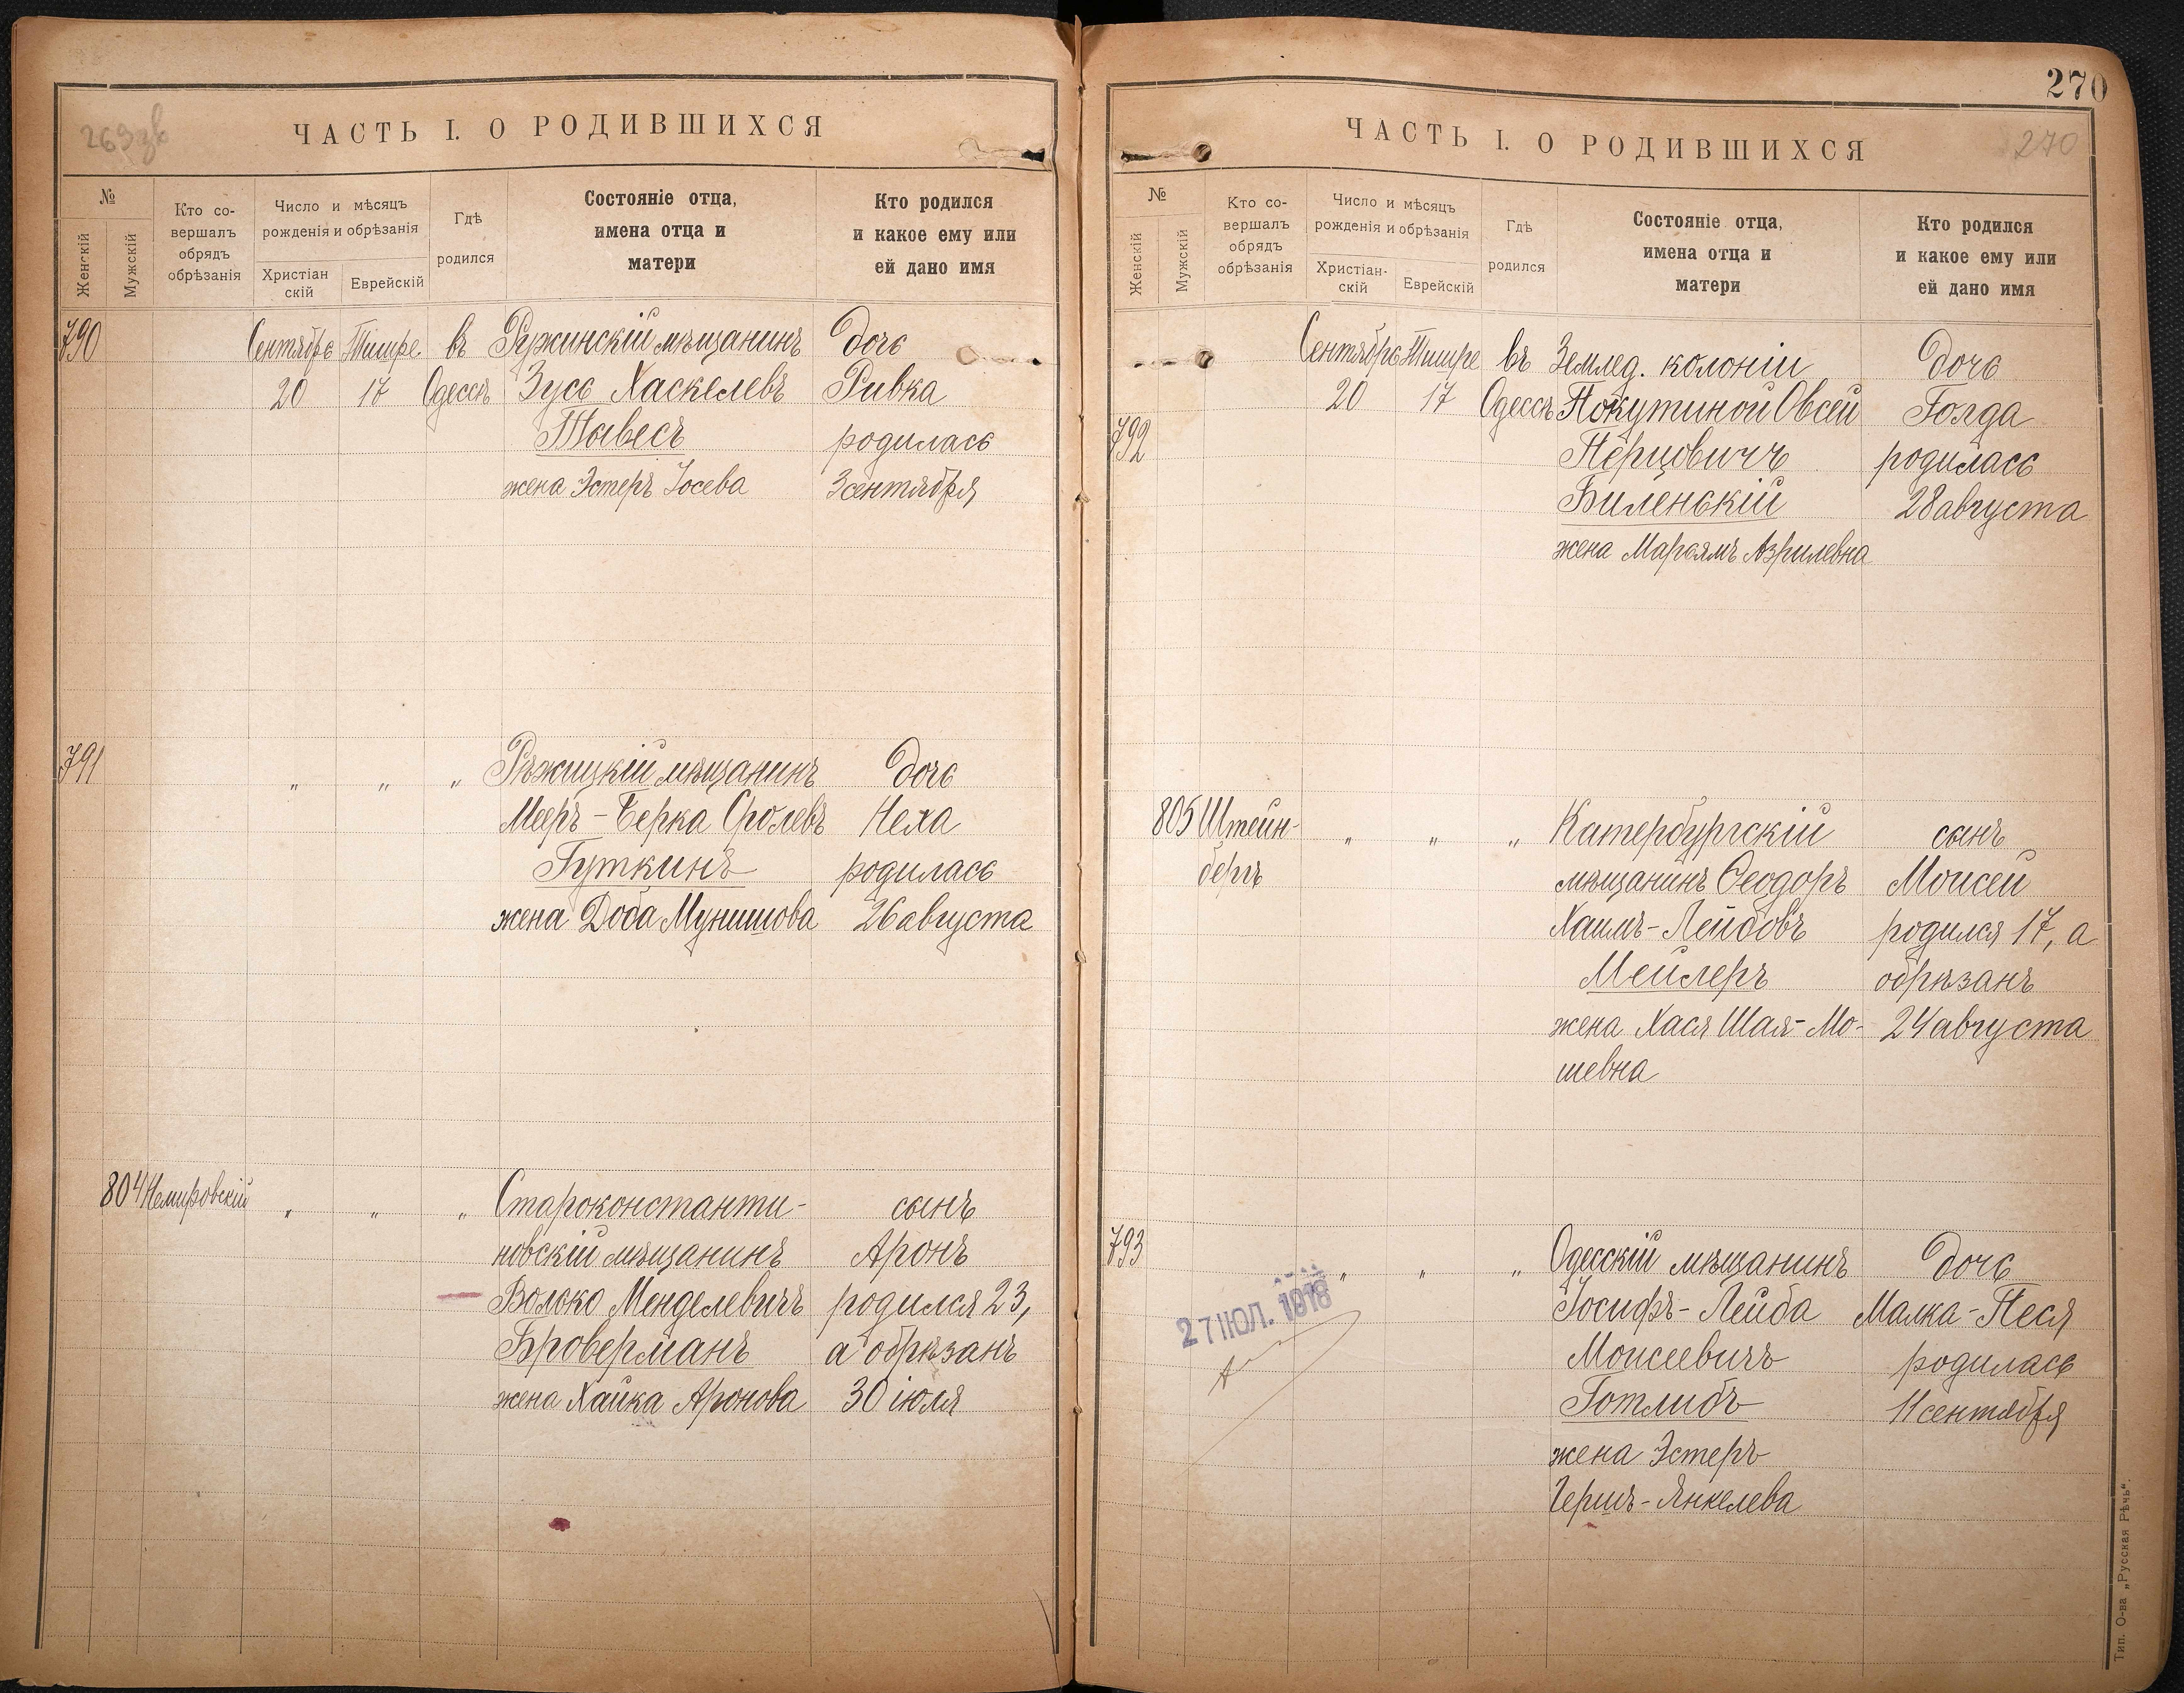 269 зв
ЧАСТЬ I. О РОДИВШИХСЯ
№
Женскій
Мужскій
Кто со-
вершалъ
обрядъ
обрѣзанія
Число и мѣсяцъ
рожденія и обрѣзанія
Христіан
скій
Еврейскій
Гдѣ
родился
Состояніе отца,
имена отца и
матери
Кто родился
и какое ему или
ей дано имя
790 Сентябрь Тишре въ Ружинскій мѣщанинъ дочь
20 17 Одессѣ Зусь Хаскелевъ Ривка
Тывесъ родилась
жена Эстеръ Іосева 3 сентября
791 " " " Рѣжицкій мѣщанинъ дочь
Мееръ-Берка Сролевъ Неха
Гуткинъ родилась
жена Доба Мунишова 26 августа
804 Немировскій " " " Староконстанти- сынъ
новскій мѣщанинъ Аронъ
Волько Менделевичъ родился 23,
Броверманъ а обрѣзанъ
жена Хайка Аронова 30 іюля
270
ЧАСТЬ I. О РОДИВШИХСЯ
270
№
Женскій
Мужскій
Кто со-
вершалъ
обрядъ
обрѣзанія
Число и мѣсяцъ
рожденія и обрѣзанія
Христіан-
скій
Еврейскій
Гдѣ
родился
Состояніе отца,
имена отца и
матери
Кто родился
и какое ему или
ей дано имя
Сентябрь Тишре въ Землед. колоніи дочь
20 17 Одессѣ Покутиной Овсей Голда
792 Перцовичъ родилась
Биленькій 28 августа
жена Марьямъ Азрилевна
805 Штейн- " " " Катербургскій сынъ
бергъ мѣщанинъ Ѳеодоръ Моисей
Хаимъ-Лейбовъ родился 17, а
Мейлеръ обрѣзанъ
жена Хася Шая-Мо- 24 августа
шевна
793 " " " Одесскій мѣщанинъ дочь
27 ІЮЛ. 1918 Іосифъ-Лейба Малка-Песя
Моисеевичъ родилась
Готлибъ 11 сентября
жена Эстеръ
Гершъ-Янкелева
Тип. О-ва „Русская Рѣчь“.